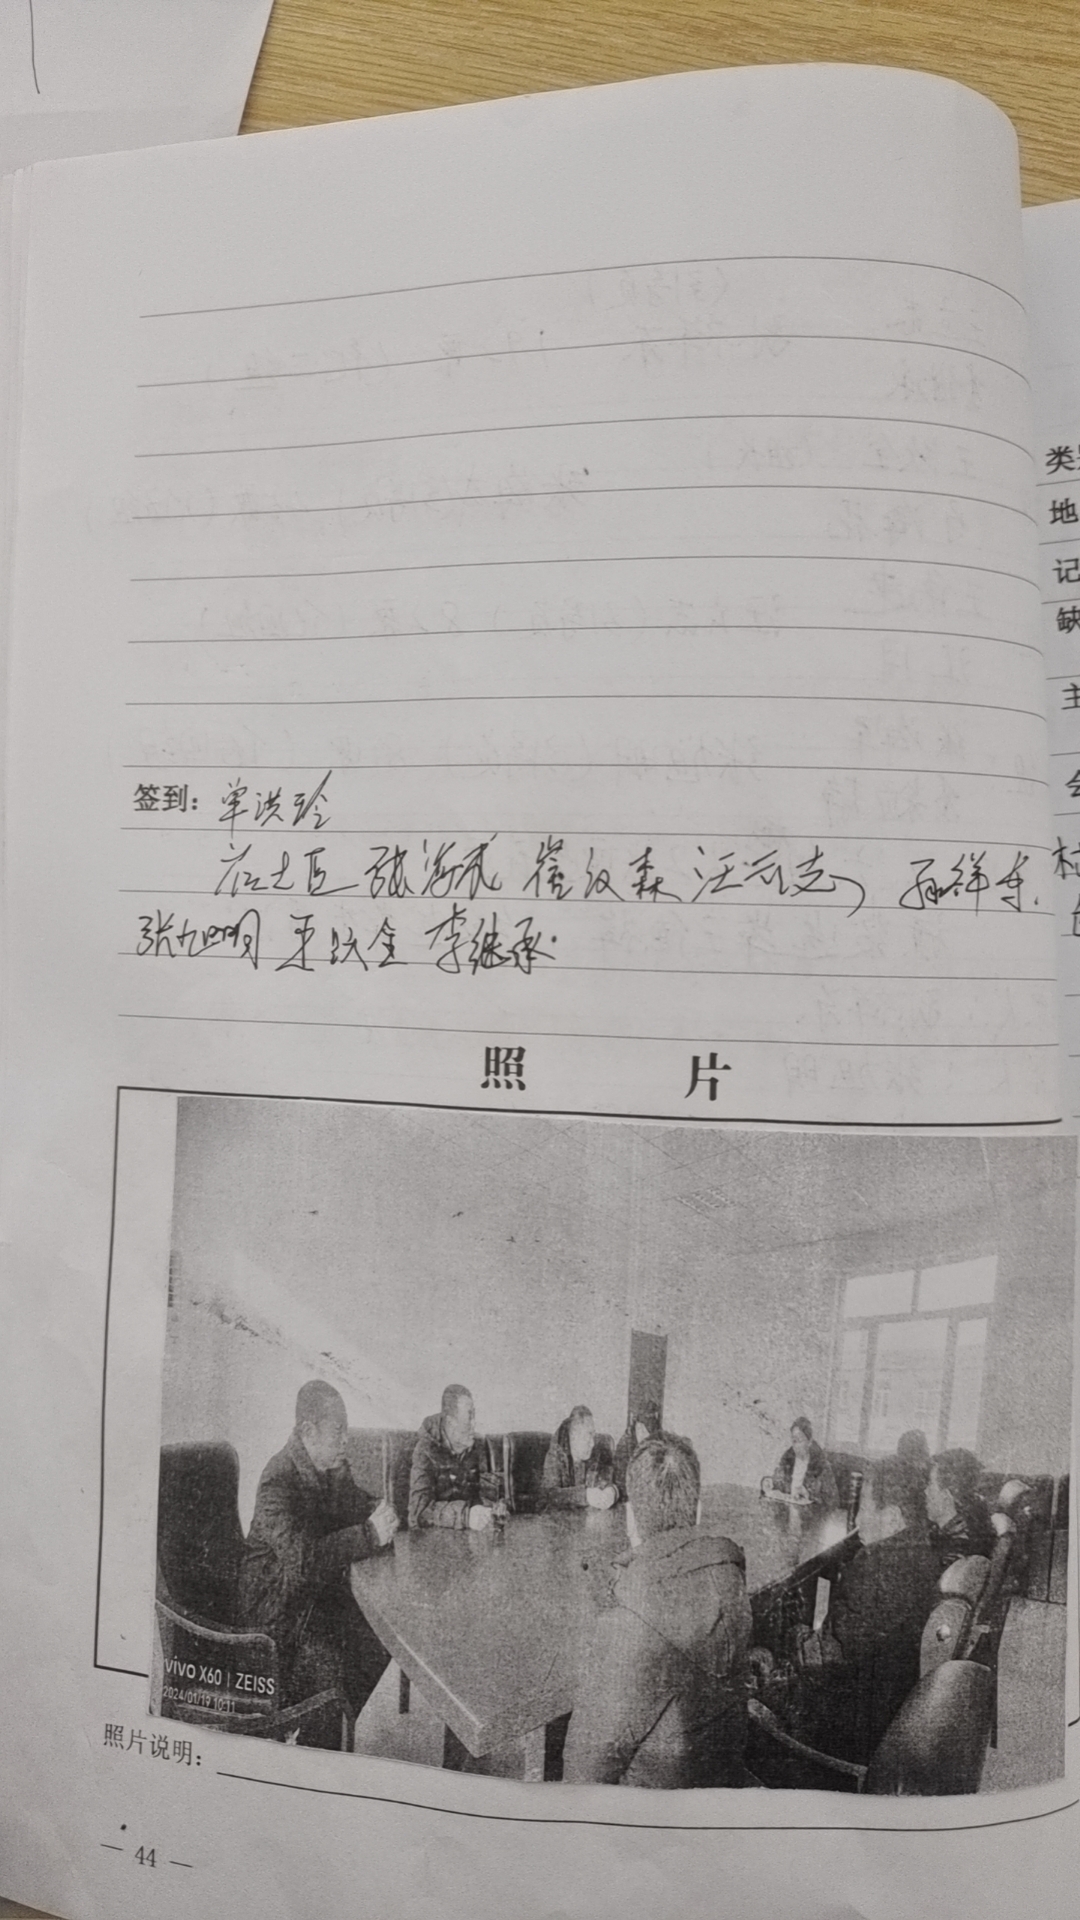 签到：单洪玲
张海武 崔汉森 汪元志 孙祥东
张旭明 王跃全 李继承
照 片
vivo X60 | ZEISS
2024/01/19 10:11
照片说明：
— 44 —
类别
地
记
缺
主
会
村